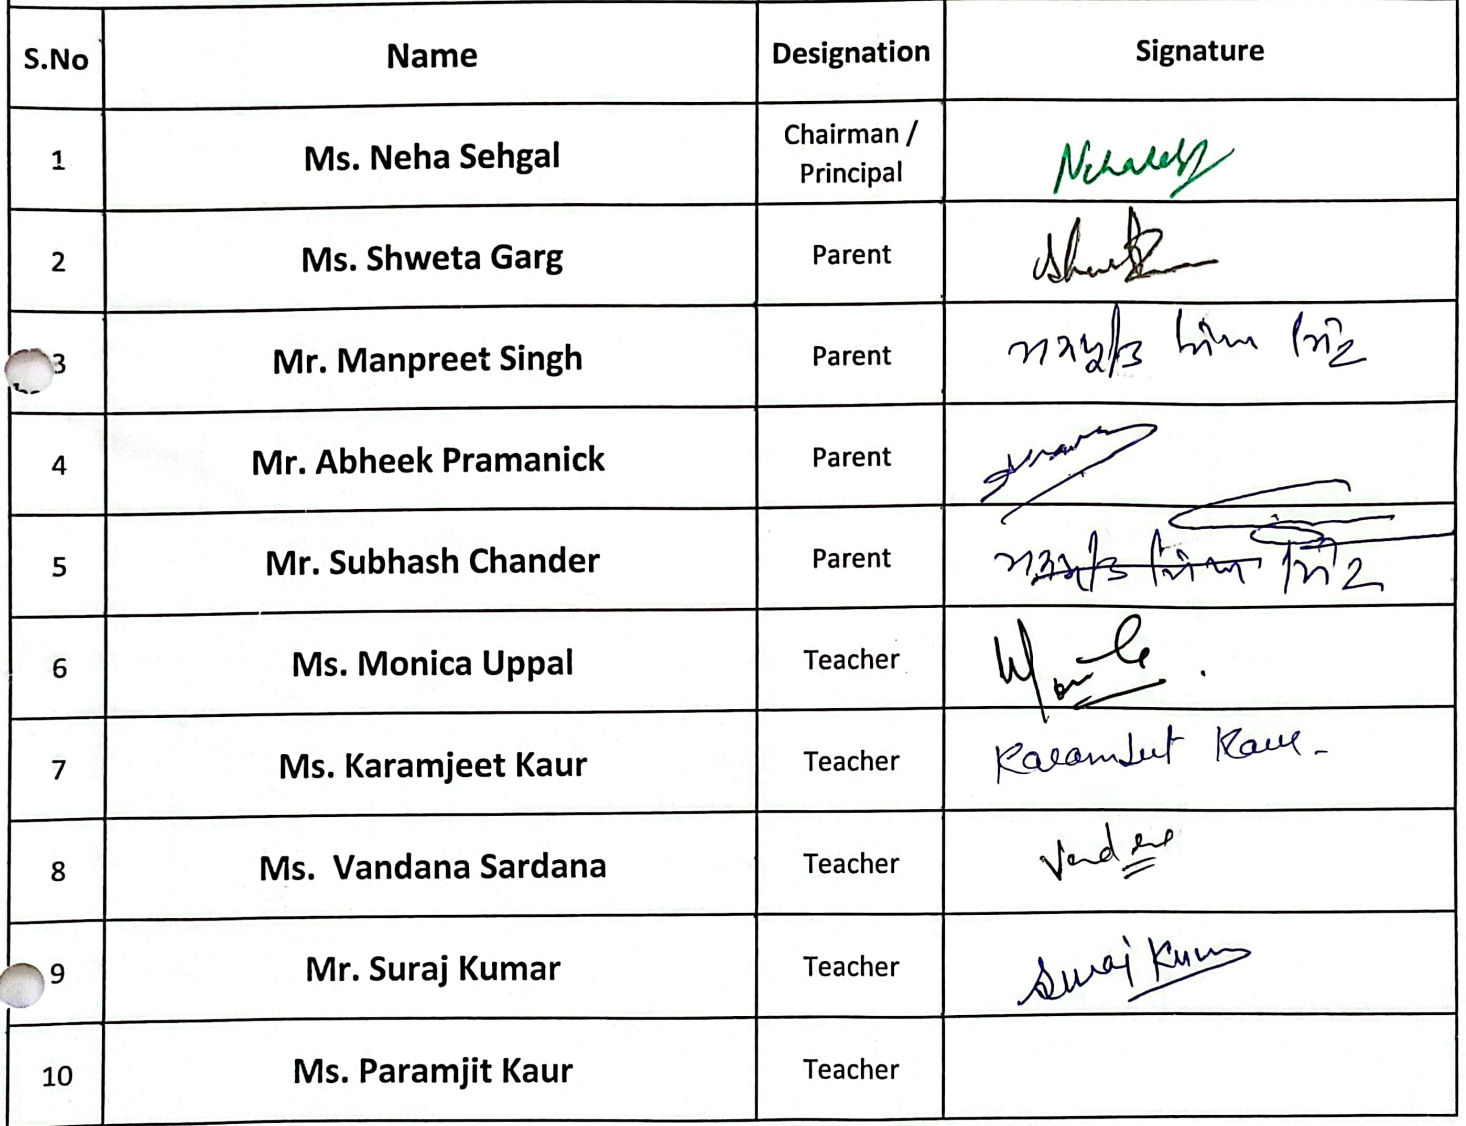 S.No Name Designation Signature
1 Ms. Neha Sehgal Chairman / Principal
2 Ms. Shweta Garg Parent
3 Mr. Manpreet Singh Parent
4 Mr. Abheek Pramanick Parent
5 Mr. Subhash Chander Parent
6 Ms. Monica Uppal Teacher
7 Ms. Karamjeet Kaur Teacher Karamjeet Kaur
8 Ms. Vandana Sardana Teacher
9 Mr. Suraj Kumar Teacher Suraj Kumar
10 Ms. Paramjit Kaur Teacher